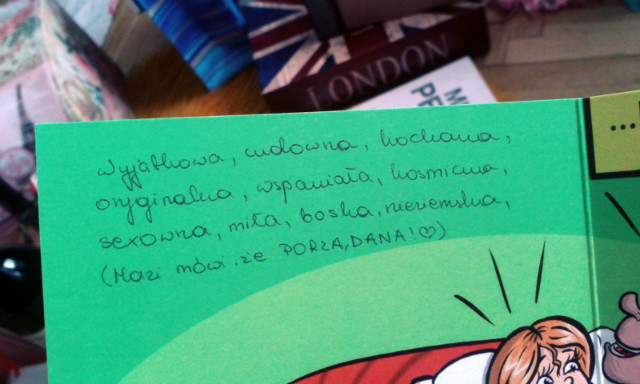 LONDON
...
Wyjątkowa, cudowna, kochana,
oryginalna, wspaniała, kosmiczna,
sexowna, miła, boska, nieziemska,
(Mazi mówi, że PORZĄDANA!♡)